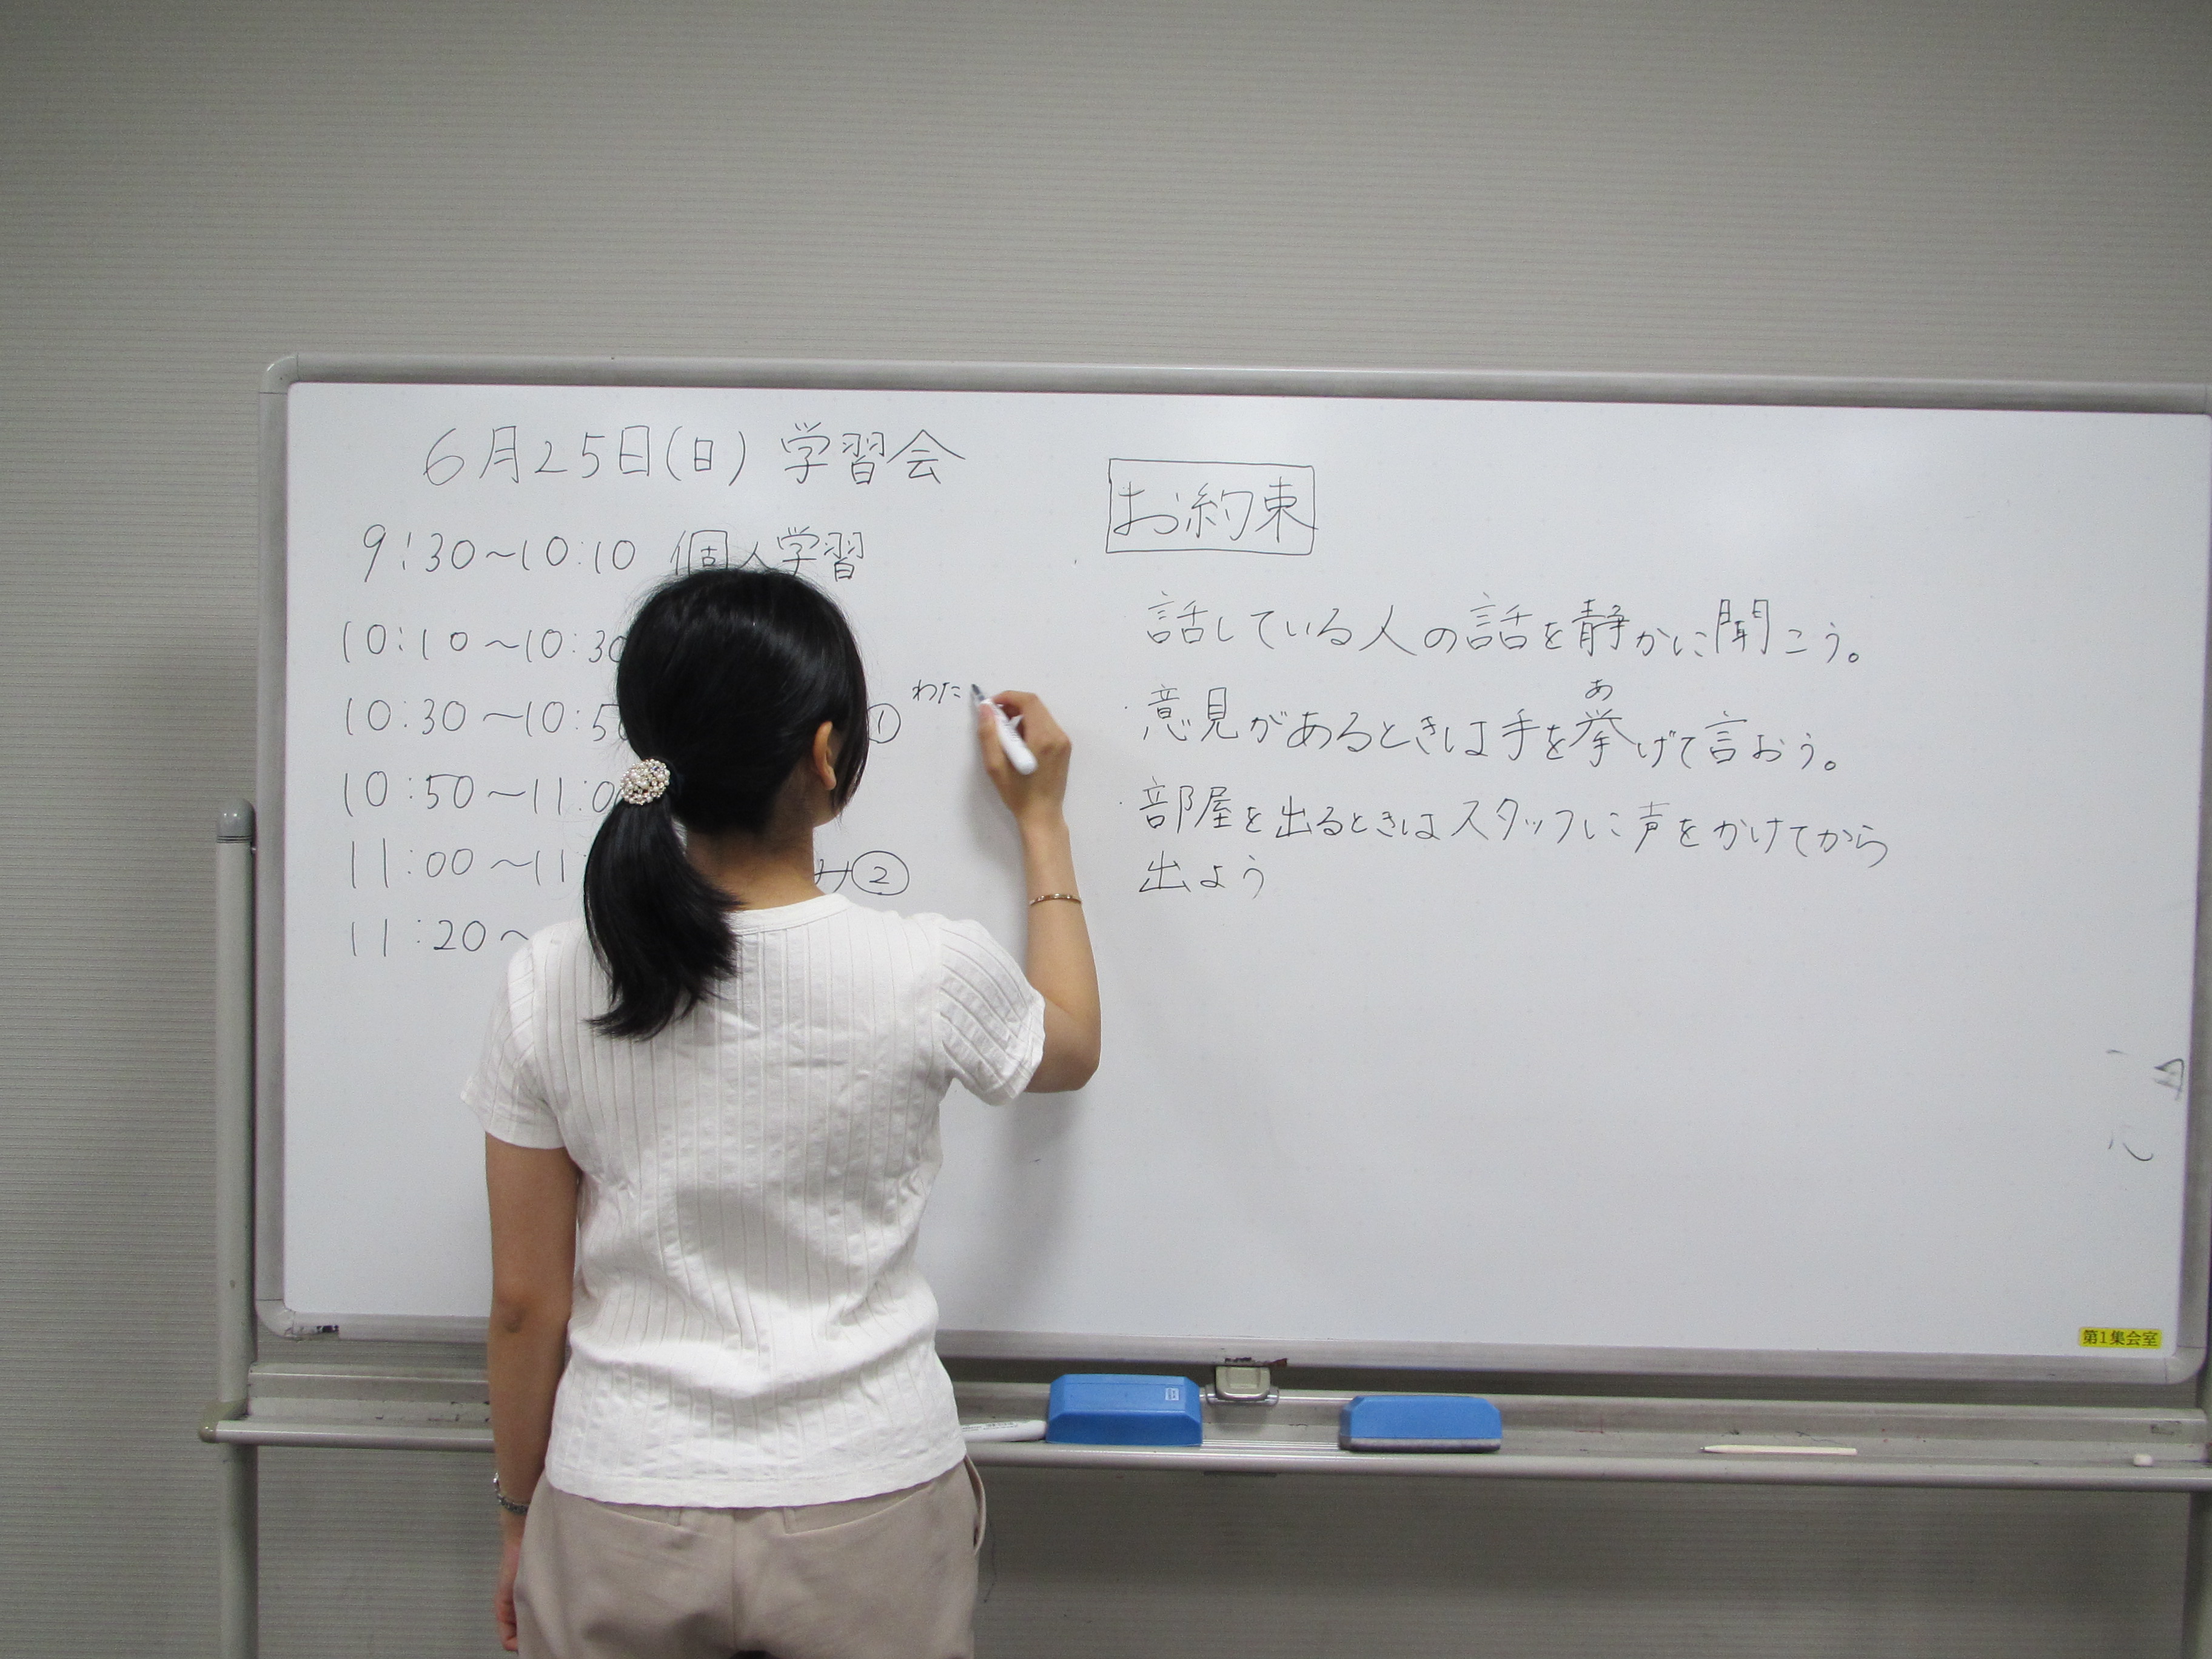 6月25日(日) 学習会
9:30〜10:10 個人学習
10:10〜10:30
10:30〜10:5 ①
わた
10:50〜11:0
11:00〜11 ②
11:20〜
お約束
話している人の話を静かに聞こう。
あ
・意見があるときは手を挙げて言おう。
・部屋を出るときはスタッフに声をかけてから
出よう
第1集会室